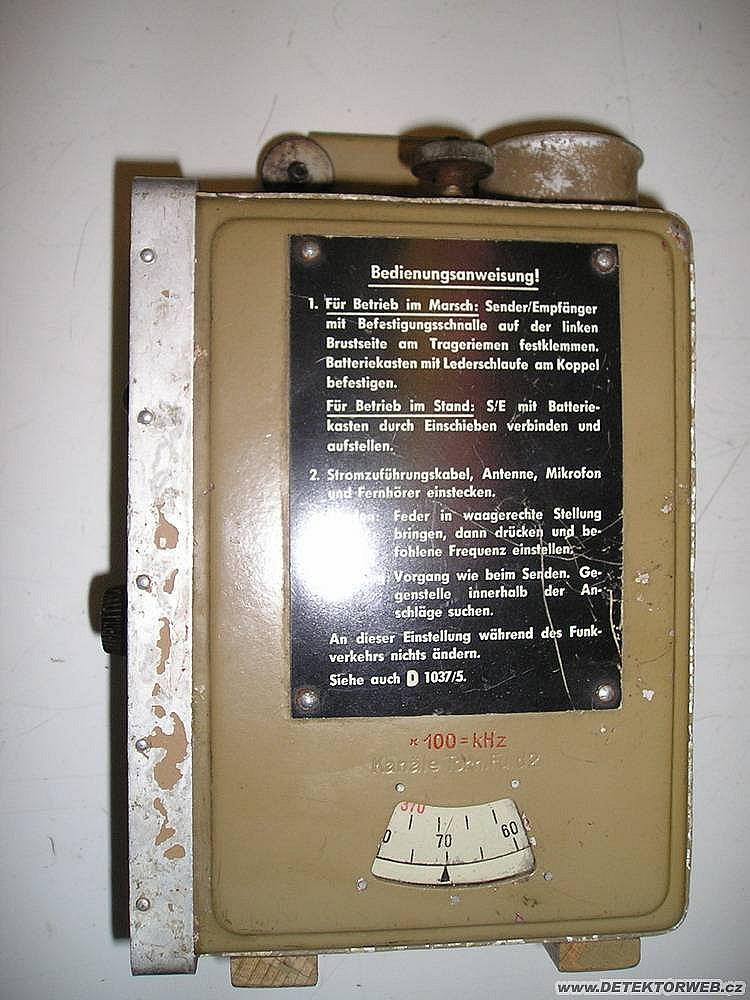 Bedienungsanweisung!
1. Für Betrieb im Marsch: Sender/Empfänger
mit Befestigungsschnalle auf der linken
Brustseite am Trageriemen festklemmen.
Batteriekasten mit Lederschlaufe am Koppel
befestigen.
Für Betrieb im Stand: S/E mit Batterie-
kasten durch Einschieben verbinden und
aufstellen.
2. Stromzuführungskabel, Antenne, Mikrofon
und Fernhörer einstecken.
Feder in waagerechte Stellung
bringen, dann drücken und be-
fohlene Frequenz einstellen.
Vorgang wie beim Senden. Ge-
genstelle innerhalb der An-
schläge suchen.
An dieser Einstellung während des Funk-
verkehrs nichts ändern.
Siehe auch D 1037/5.
x 100 = kHz
Kanäle Torn. Fu. d2
370
0 70 60
www.DETEKTORWEB.cz